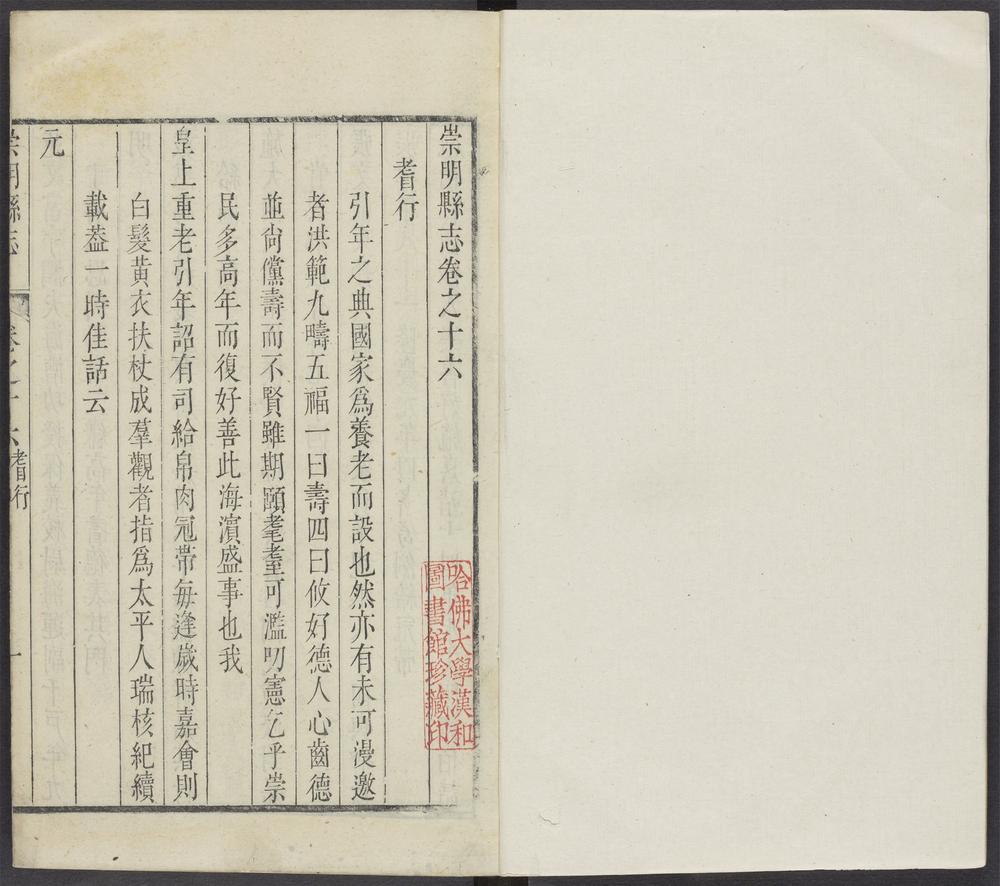 崇明縣志卷之十六
耆行
引年之典國家爲養老而設也然亦有未可漫邀
者洪範九疇五福一曰壽四曰攸好德人心齒德
並尚儻壽而不賢雖期頤耄耋可濫叨憲乞乎崇
民多高年而復好善此海濱盛事也我
皇上重老引年詔有司給帛肉冠帶每逢歲時嘉會則
白髮黃衣扶杖成羣觀者指爲太平人瑞核紀續
載葢一時佳話云
元
崇明縣志
卷之十六
耆行
一
哈佛大學漢和
圖書館珍藏印